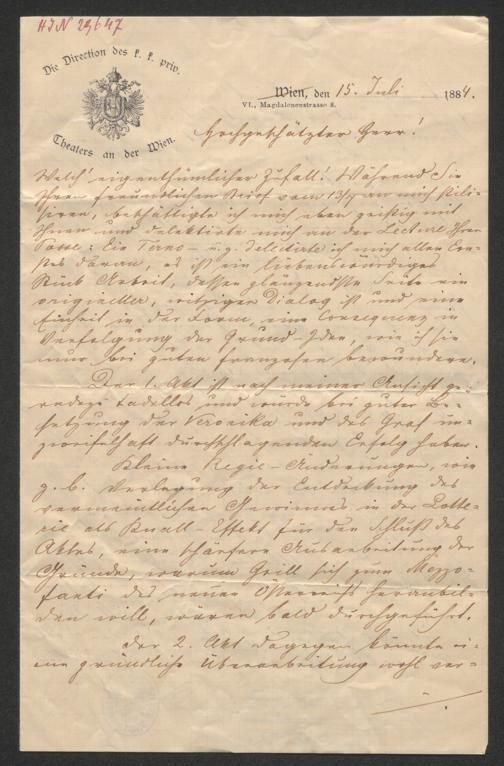 HIN 29647
Die Direction des k. k. priv.
Theaters an der Wien.
Wien, den 15. Juli 1884.
VI., Magdalenenstrasse 8.
Hochgeschätzter Herr!
Welch' eigenthümlicher Zufall! Während Sie
Ihren freundlichen Brief vom 13/7 an mich stili-
siren, beschäftigte ich mich eben geistig mit
Ihnen und delektirte mich an der Lecture Ihrer
Posse: Ein Terno – u. z. delectirte ich mich allen Ern-
stes daran, es ist ein liebenswürdiges
Stück Arbeit, dessen glänzendste Seite ein
origineller, witziger Dialog ist und eine
Einheit in der Form, eine Consequenz in
Verfolgung der Grund-Idee, wie ich sie
nur bei guten Franzosen bewundere.
Der 1. Akt ist nach meiner Ansicht ge-
radezu tadellos und würde bei guter Be-
setzung der Veronika und des Graf un-
zweifelhaft durchschlagenden Erfolg haben.
Kleine Regie-Änderungen, wie
z. b. Verlegung der Entdeckung des
vermeintlichen Gewinnes in der Lotte-
rie als Knall-Effekt für den Schluß des
Aktes, eine schärfere Ausarbeitung der
Gründe, warum Grill sich zum Mezzo-
fanti des neuen Österreichs heranbil-
den will, wären bald durchgeführt.
Der 2. Akt dagegen könnte ei-
ne gründliche Überarbeitung wohl ver-